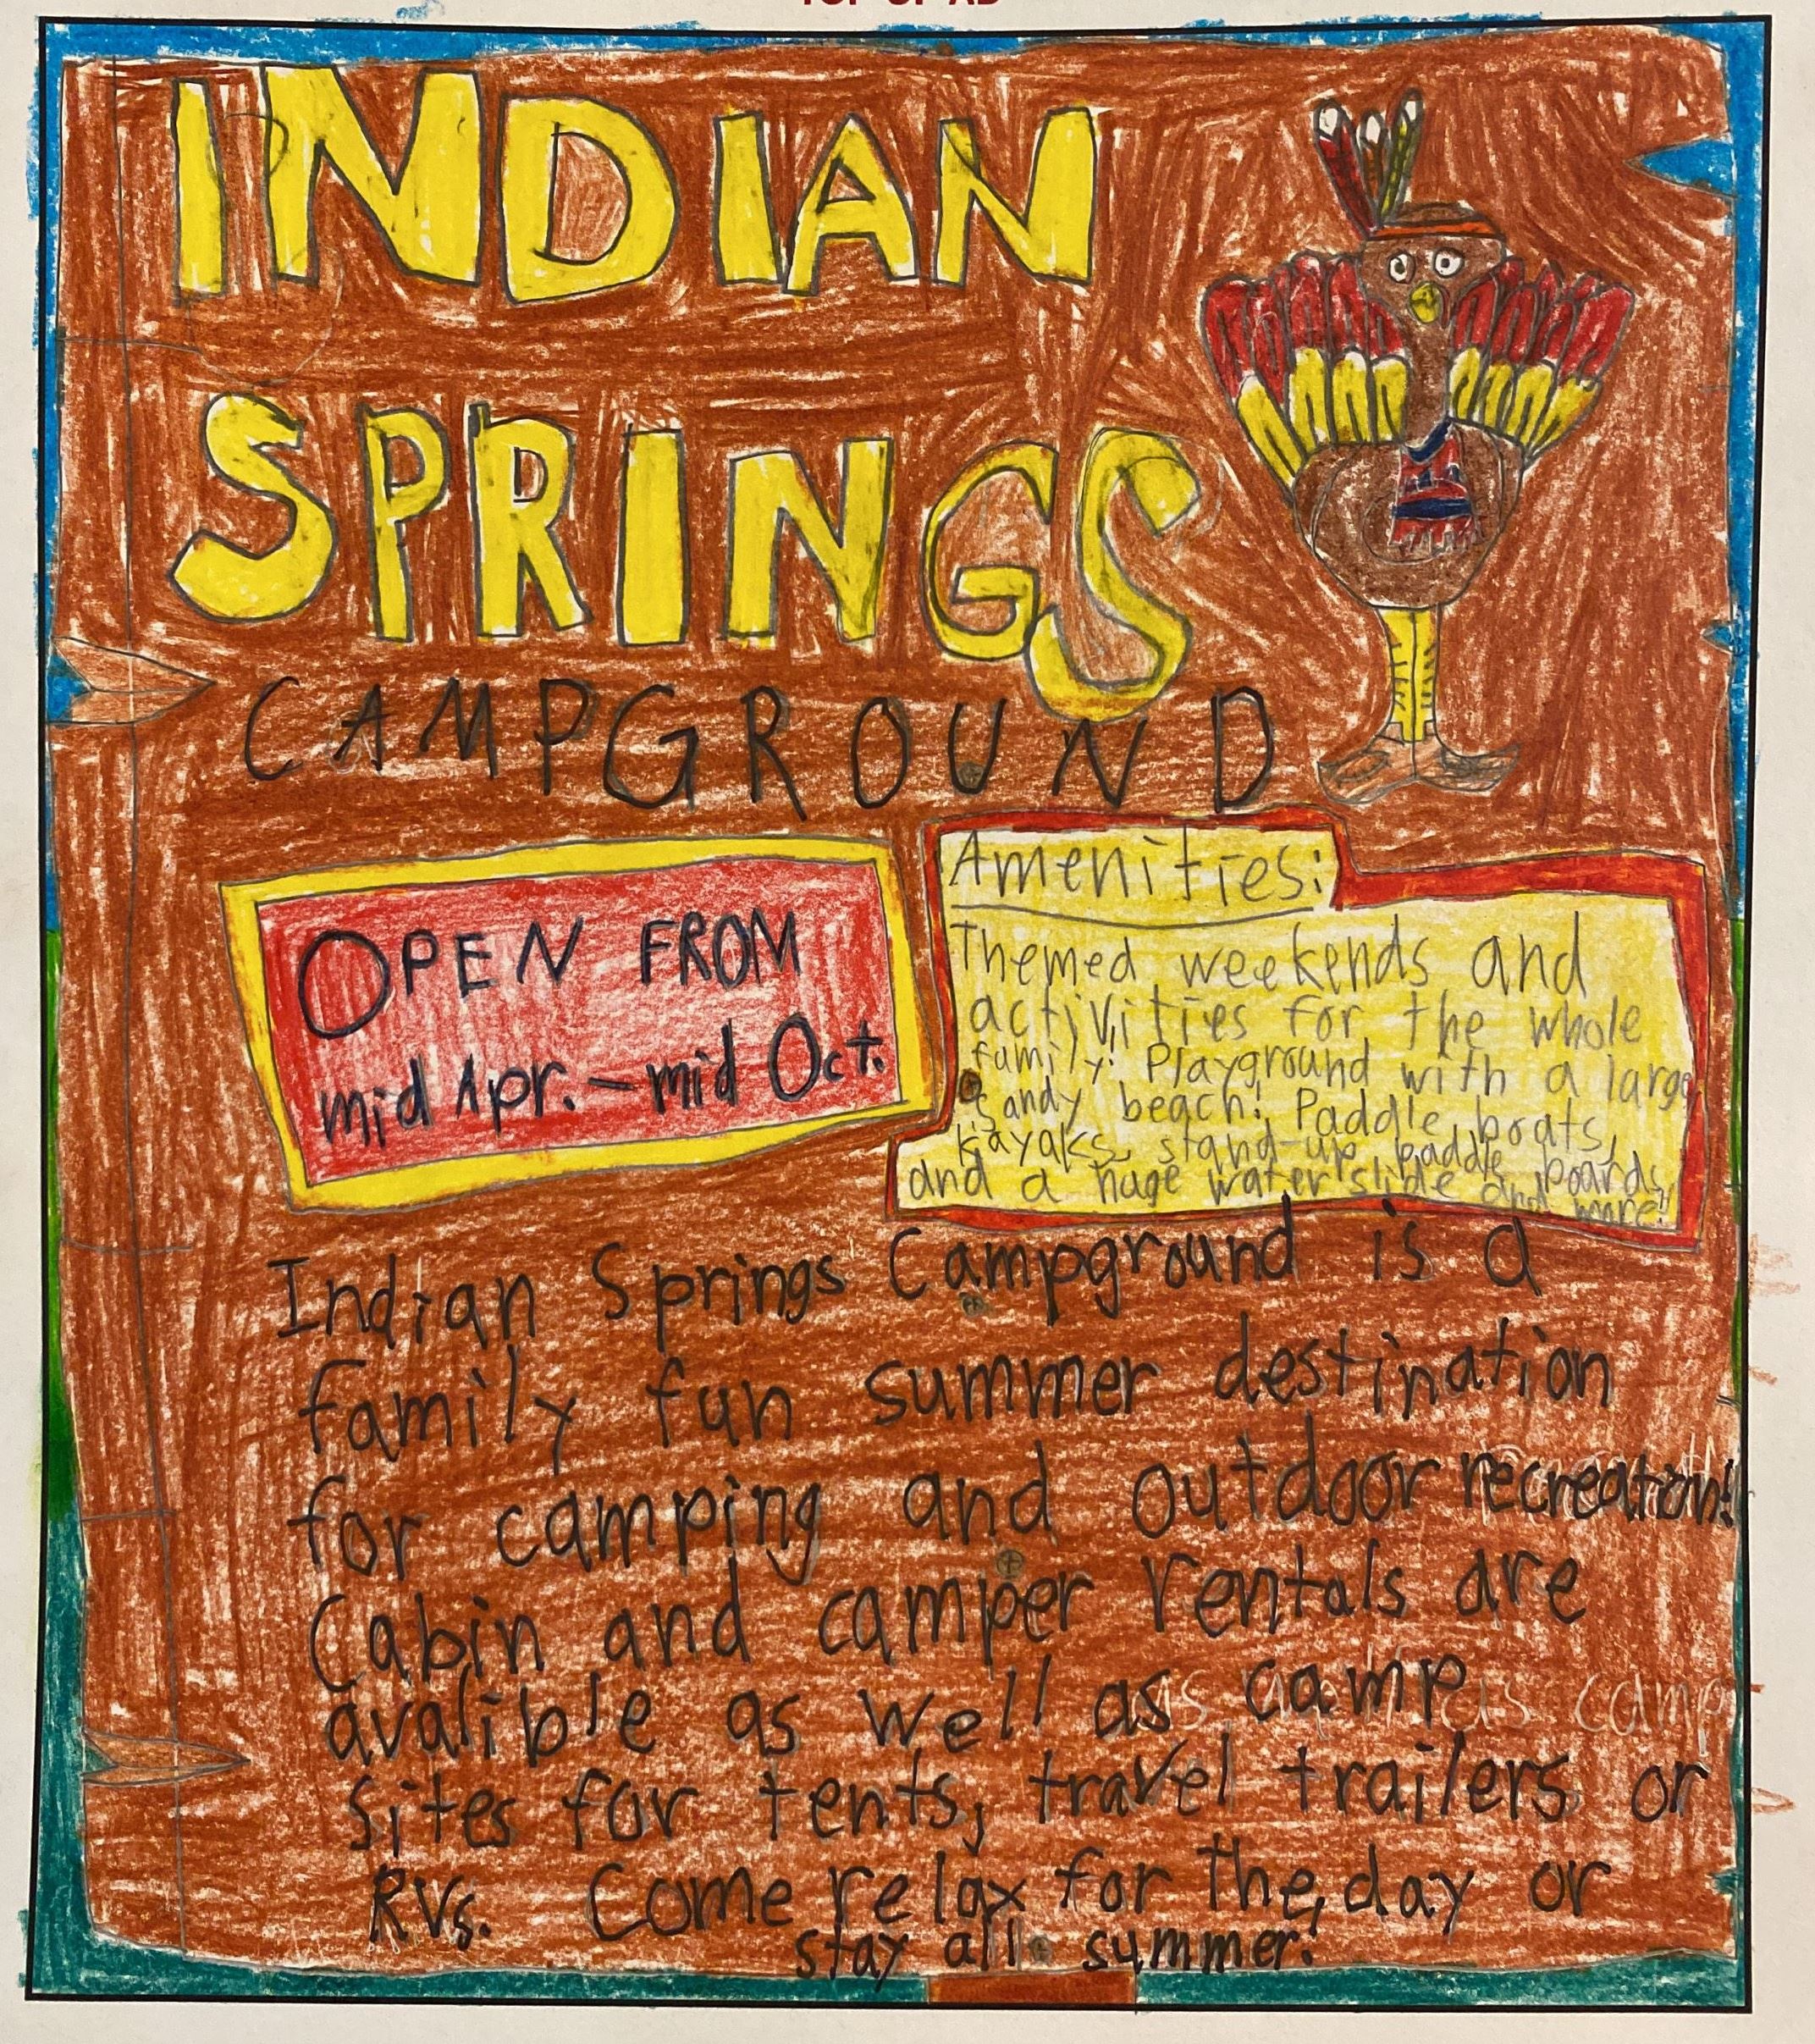 TOP OF AD
INDIAN
SPRINGS
CAMPGROUND
OPEN FROM
mid Apr. - mid Oct.
Amenities:
Themed weekends and
activities for the whole
family! Playground with a large
sandy beach! Paddle boats,
kayaks, stand-up paddle boards,
and a huge water slide and more!
Indian Springs Campground is a
family fun summer destination
for camping and outdoor recreation!
Cabin and camper rentals are
avalible as well as camp
sites for tents, travel trailers or
RVs. Come relax for the day or
stay all summer.